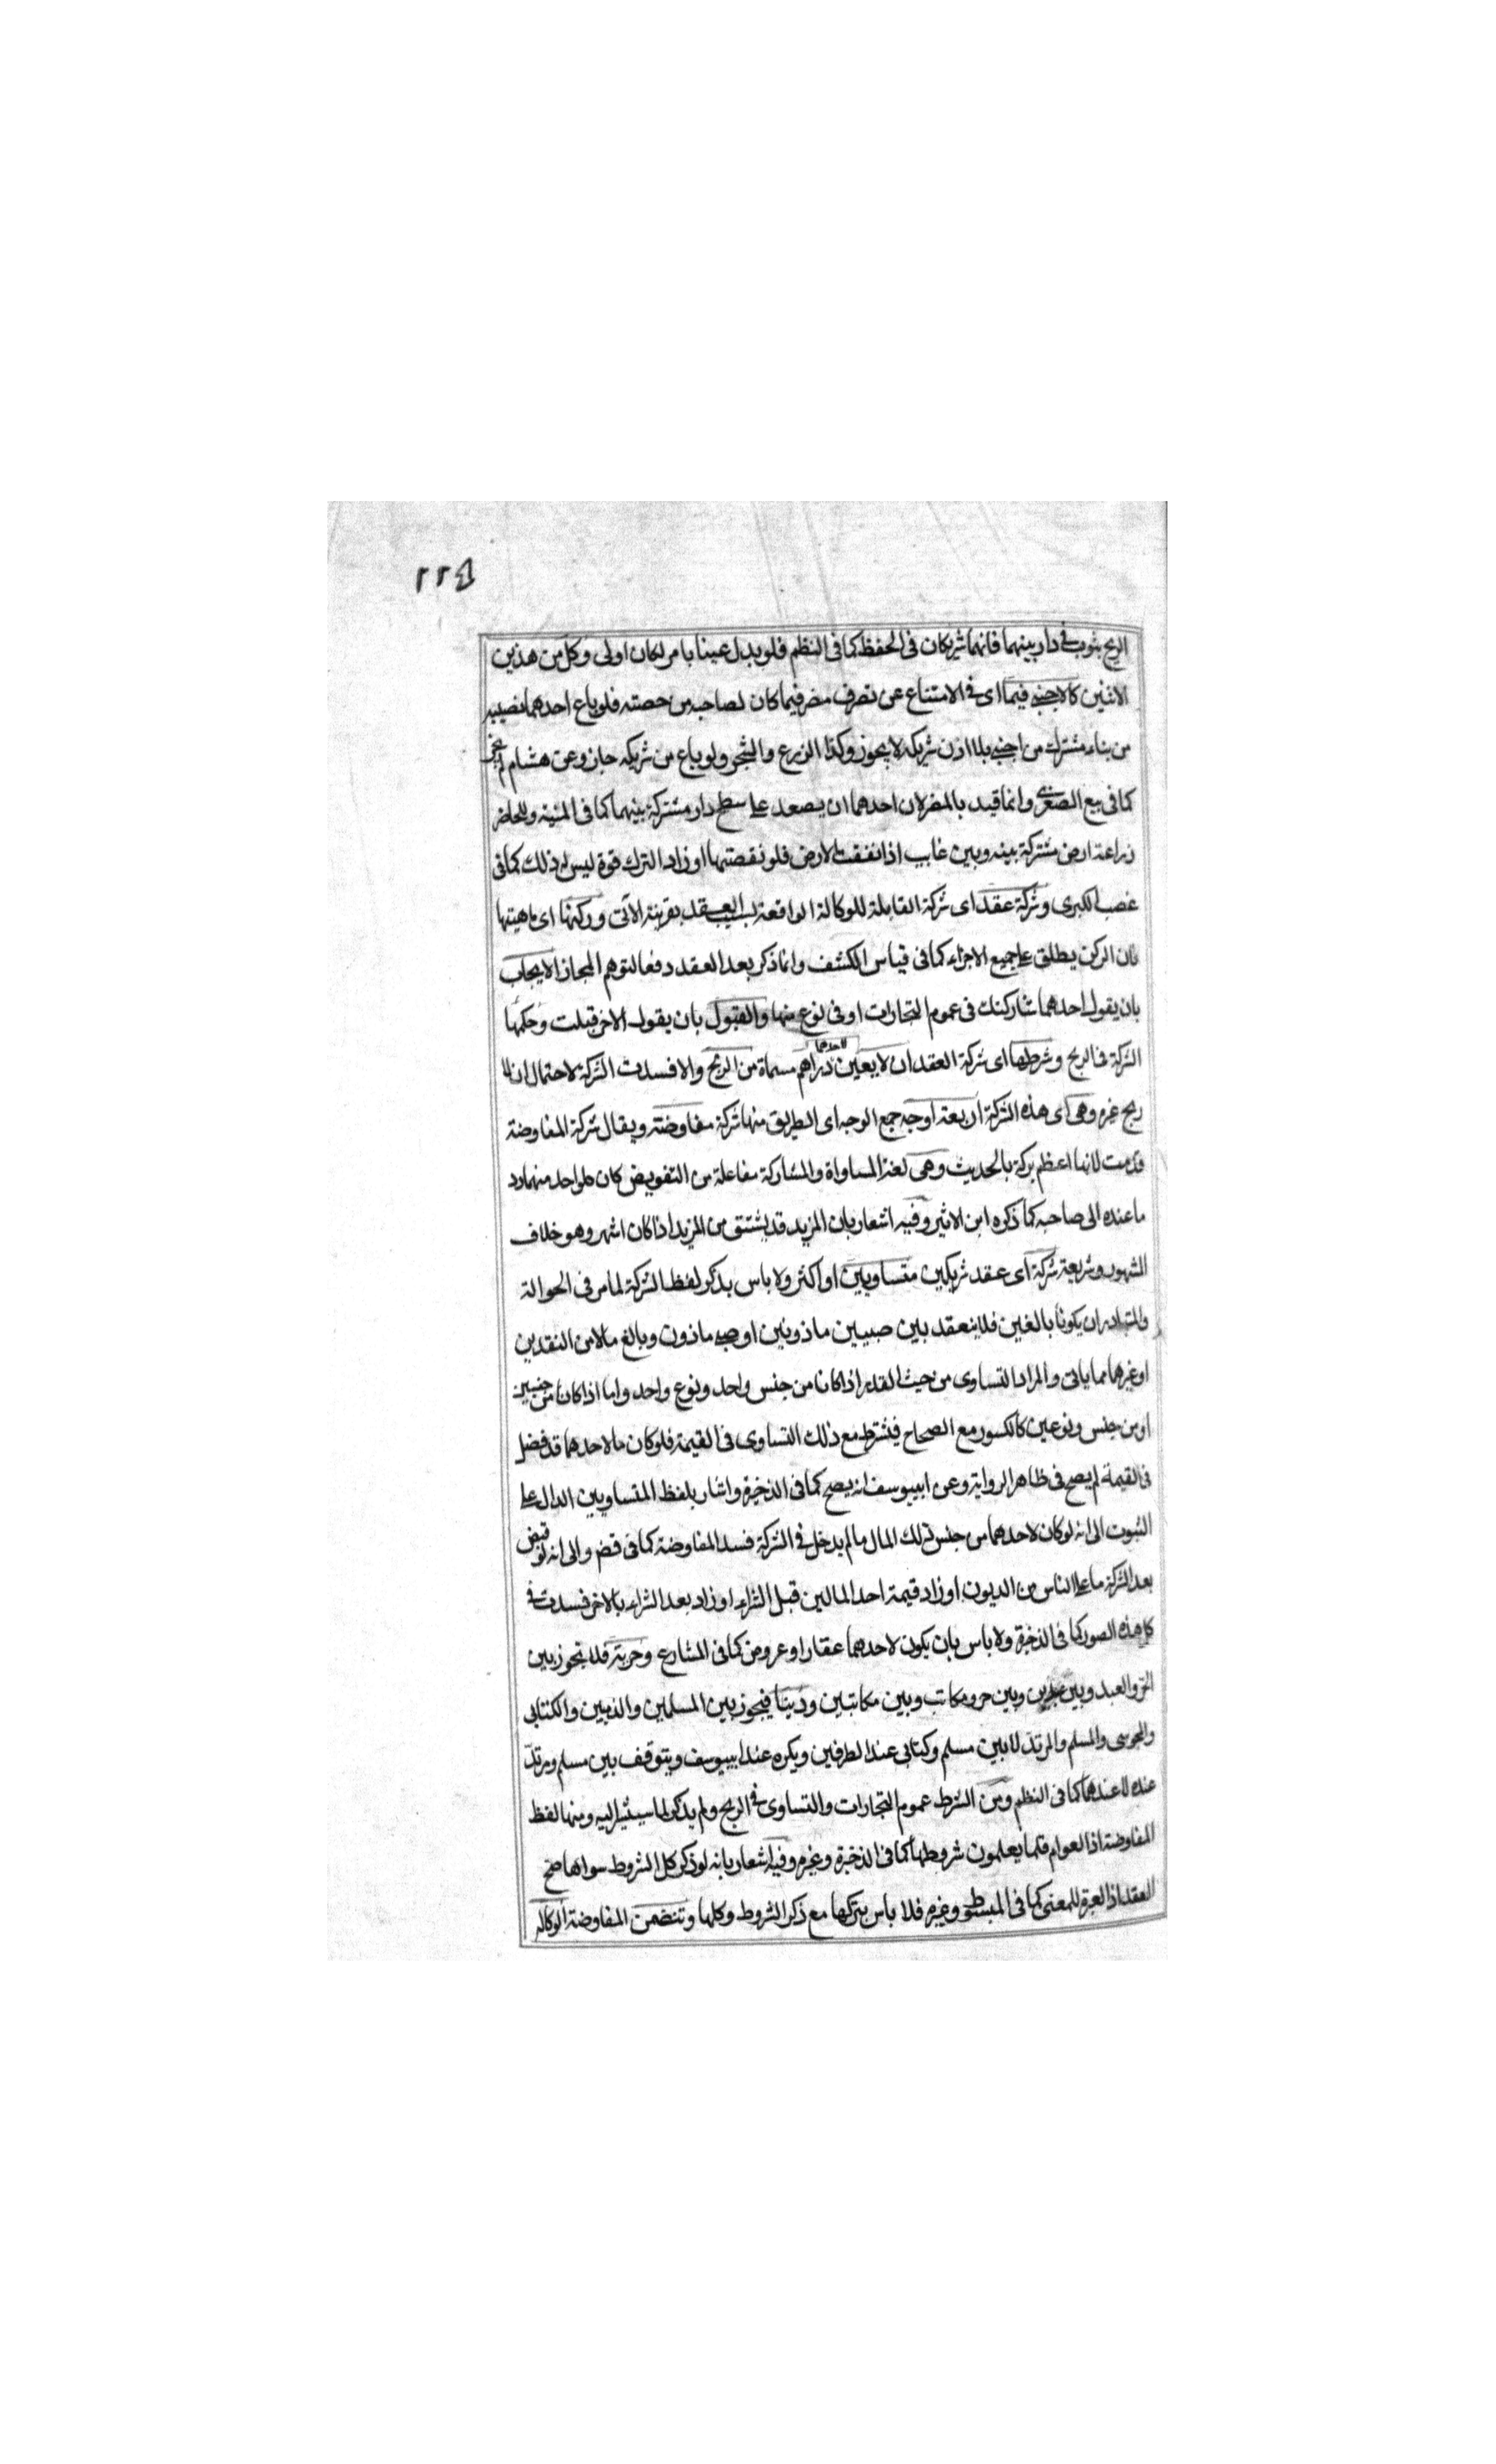 ٢٢٤
الريح بثوب فى دار بينهما فانهما شريكان فى الحفظ كما فى النظم فلو بدل عينا بامر لكان اولى وكل من هذين
الاثنين كالاجنبى فيما اى فى الامتناع عن تصرف مضر فيما كان لصاحبه من حصته فلو باع احدهما نصيبه
من بناء مشترك من اجنبى بلا اذن شريكه لا يجوز وكذا الزرع والشجر ولو باع من شريكه جاز وعن هشام لم يجز
كما فى بيع الصغرى وانما قيد بالمضر لان احدهما ان يصعد على سطح دار مشتركة بينهما كما فى المنية وللحاضر
زراعة ارض مشتركة بينه وبين غايب اذا نفعت الارض فلو نقصتها او زاد الترك قوة ليس له ذلك كما فى
غصب الكبرى وشركة عقد اى شركة القابلة للوكالة الواقعة بسبب العقد بقرينة الآتى وركنها اى ماهيتها
فان الركن يطلق على جميع الاجزاء كما فى قياس الكشف وانما ذكر بعد العقد دفعا لتوهم المجاز الايجاب
بان يقول احدهما شاركتك فى عموم التجارات او فى نوع منها والقبول بان يقول الاخر قبلت وحكمها
الشركة فى الربح وشرطها اى شركة العقد ان لا يعين لاحدهما دراهم مسماة من الربح والا فسدت الشركة لاحتمال ان لا
ربح غيره وهى اى هذه الشركة اربعة اوجه جمع الوجه اى الطريق منها شركة مفاوضة ويقال شركة المفاوضة
قدمت لانها اعظم بركة بالحديث وهى لغة المساواة والمشاركة مفاعلة من التفويض كان كل واحد منهما رد
ما عنده الى صاحبه كما ذكره ابن الاثير وفيه اشعار بان المزيد قد يشتق من المزيد اذا كان اشهر وهو خلاف
المشهور وشريعة شركة اى عقد شريكين متساويين او اكثر ولا باس بذكر لفظ الشركة لما مر فى الحوالة
والمتبادر ان يكونا بالغين فلا ينعقد بين صبيين ماذونين او صبى ماذون وبالغ مالا من النقدين
او غيرهما مما ياتى والمراد التساوى من حيث القدر اذا كانا من جنس واحد ونوع واحد واما اذا كان من جنسين
او من جنس ونوعين كالكسور مع الصحاح فيشترط مع ذلك التساوى فى القيمة فلو كان مالاحدهما قد فضل
فى القيمة لم يصح فى ظاهر الرواية وعن ابييوسف انه يصح كما فى الذخيرة واشار بلفظ المتساويين الدال على
الثبوت الى انه لو كان لاحدهما من جنس ذلك المال ما لم يدخل فى الشركة فسد المفاوضة كما فى قضم والى انه لو قبض
بعد الشركة ما على الناس من الديون او زاد قيمة احد المالين قبل الشراء او زاد بعد الشراء بالاخر فسدت فى
كل هذه الصور كما فى الذخيرة ولا باس بان يكون لاحدهما عقار او عروض كما فى المشارع وحرية فلا تجوز بين
الحر والعبد وبين عبدين وبين حر ومكاتب وبين مكاتبين ودينا فيجوز بين المسلمين والذميين والكتابى
والمجوسى والمسلم والمرتد لا بين مسلم وكتابى عند الطرفين ويكره عند ابييوسف ويتوقف بين مسلم ومرتد
عنده لا عندهما كما فى النظم ومن الشرط عموم التجارات والتساوى فى الربح ولم يذكر لما سيشير اليه ومنها لفظ
المفاوضة اذ العوام قلما يعلمون شروطها كما فى الذخيرة وغيره وفيه اشعار بانه لو ذكر كل الشروط سواها صح
العقد اذ العبرة للمعنى كما فى المبسوط وغيره فلا باس بتركها مع ذكر الشروط وكلها وتتضمن المفاوضة الوكالة